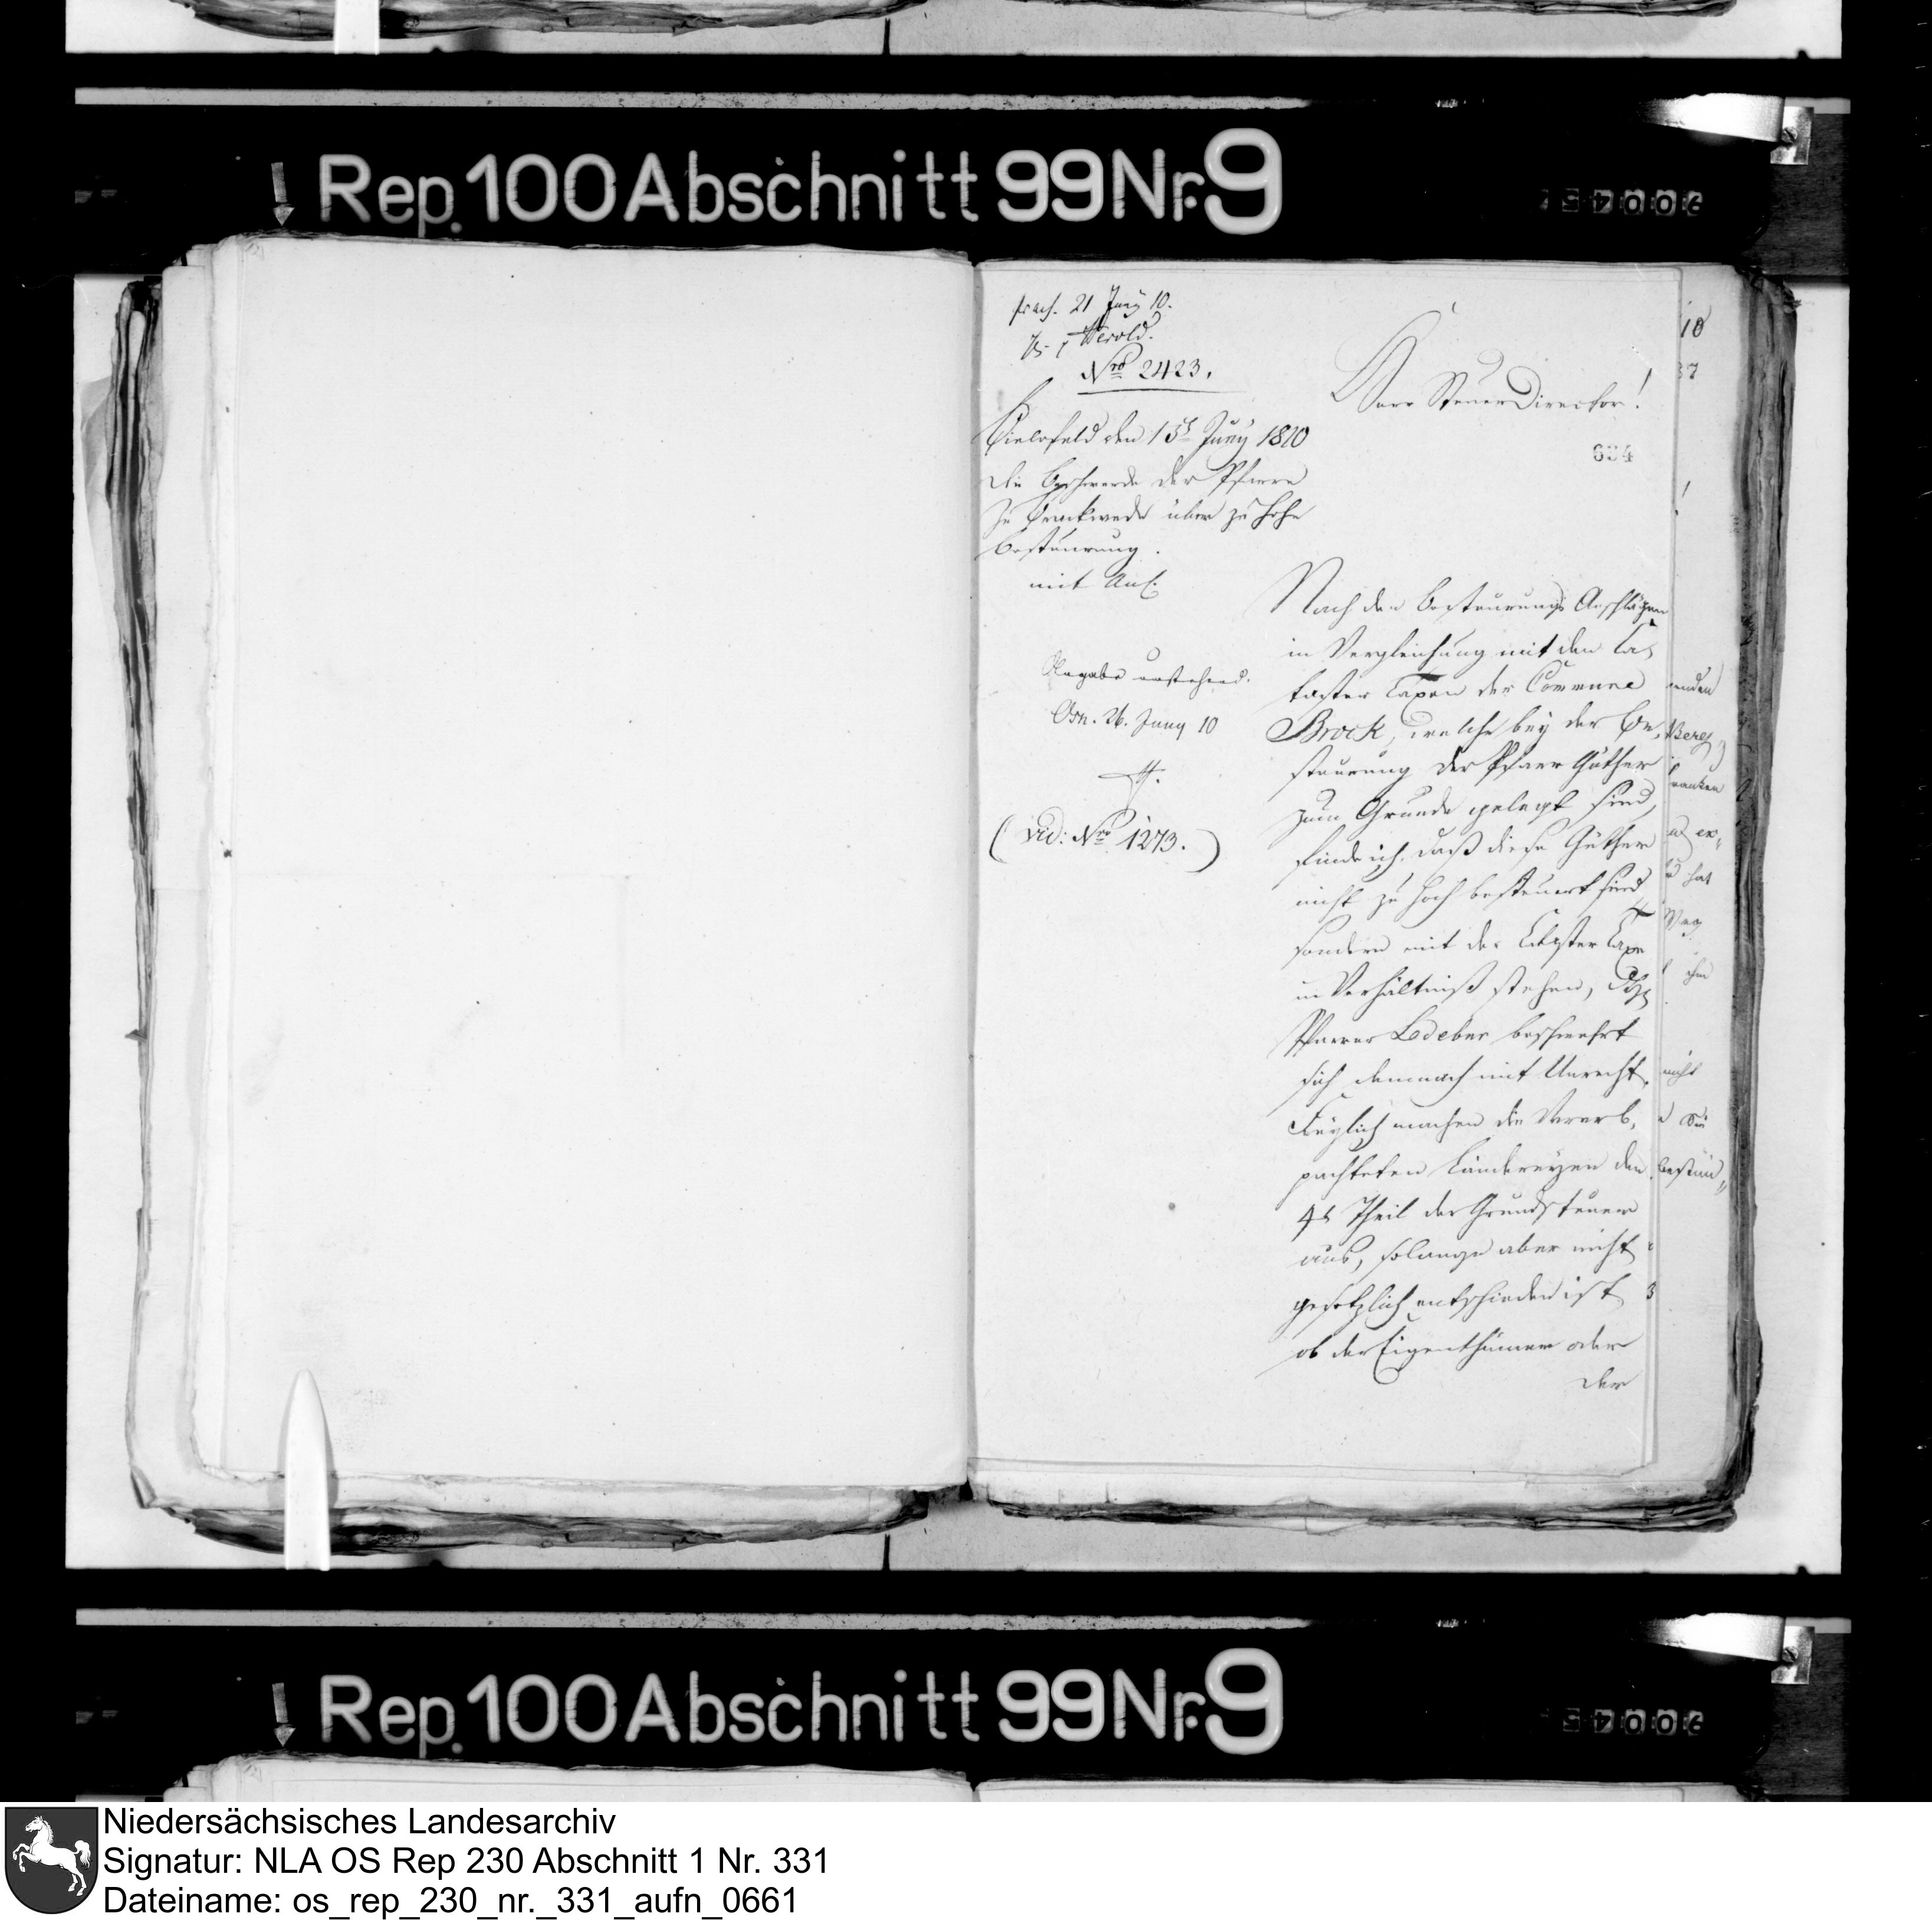 Rep. 100 Abschnitt 99 Nr. 9
præs. 21 Juny 10.
Herold.
Nro 2423.
Bielefeld den 15t Juny 1810
Die Beschwerde der Pfarre
zu Brackwede über zu hohe
Besteurung.
mit Anl.
Osn. 26. Juny 10
(vid: Nro 1273.)
Herr SteuerDirector!
634
Nach den Besteurungs Anschlägen
in Vergleichung mit den Ca-
taster Taxen der Commune
Brock, welche bey der Be-
steurung der Pfarr Güther
zum Grunde gelegt sind,
finde ich, daß diese Güther
nicht zu hoch besteuert sind,
sondern mit der Cataster Taxe
in Verhältniß stehen,
Pfarrer Lodeber beschwehrt
sich demnach mit Unrecht.
Freylich machen die Vererb-
pachteten Ländereyen den
4t Theil der Grundsteuer
aus, solange aber nicht
gesetzlich entschieden ist
ob der Eigenthümer oder
der
Rep. 100 Abschnitt 99 Nr. 9
Niedersächsisches Landesarchiv
Signatur: NLA OS Rep 230 Abschnitt 1 Nr. 331
Dateiname: os_rep_230_nr._331_aufn_0661